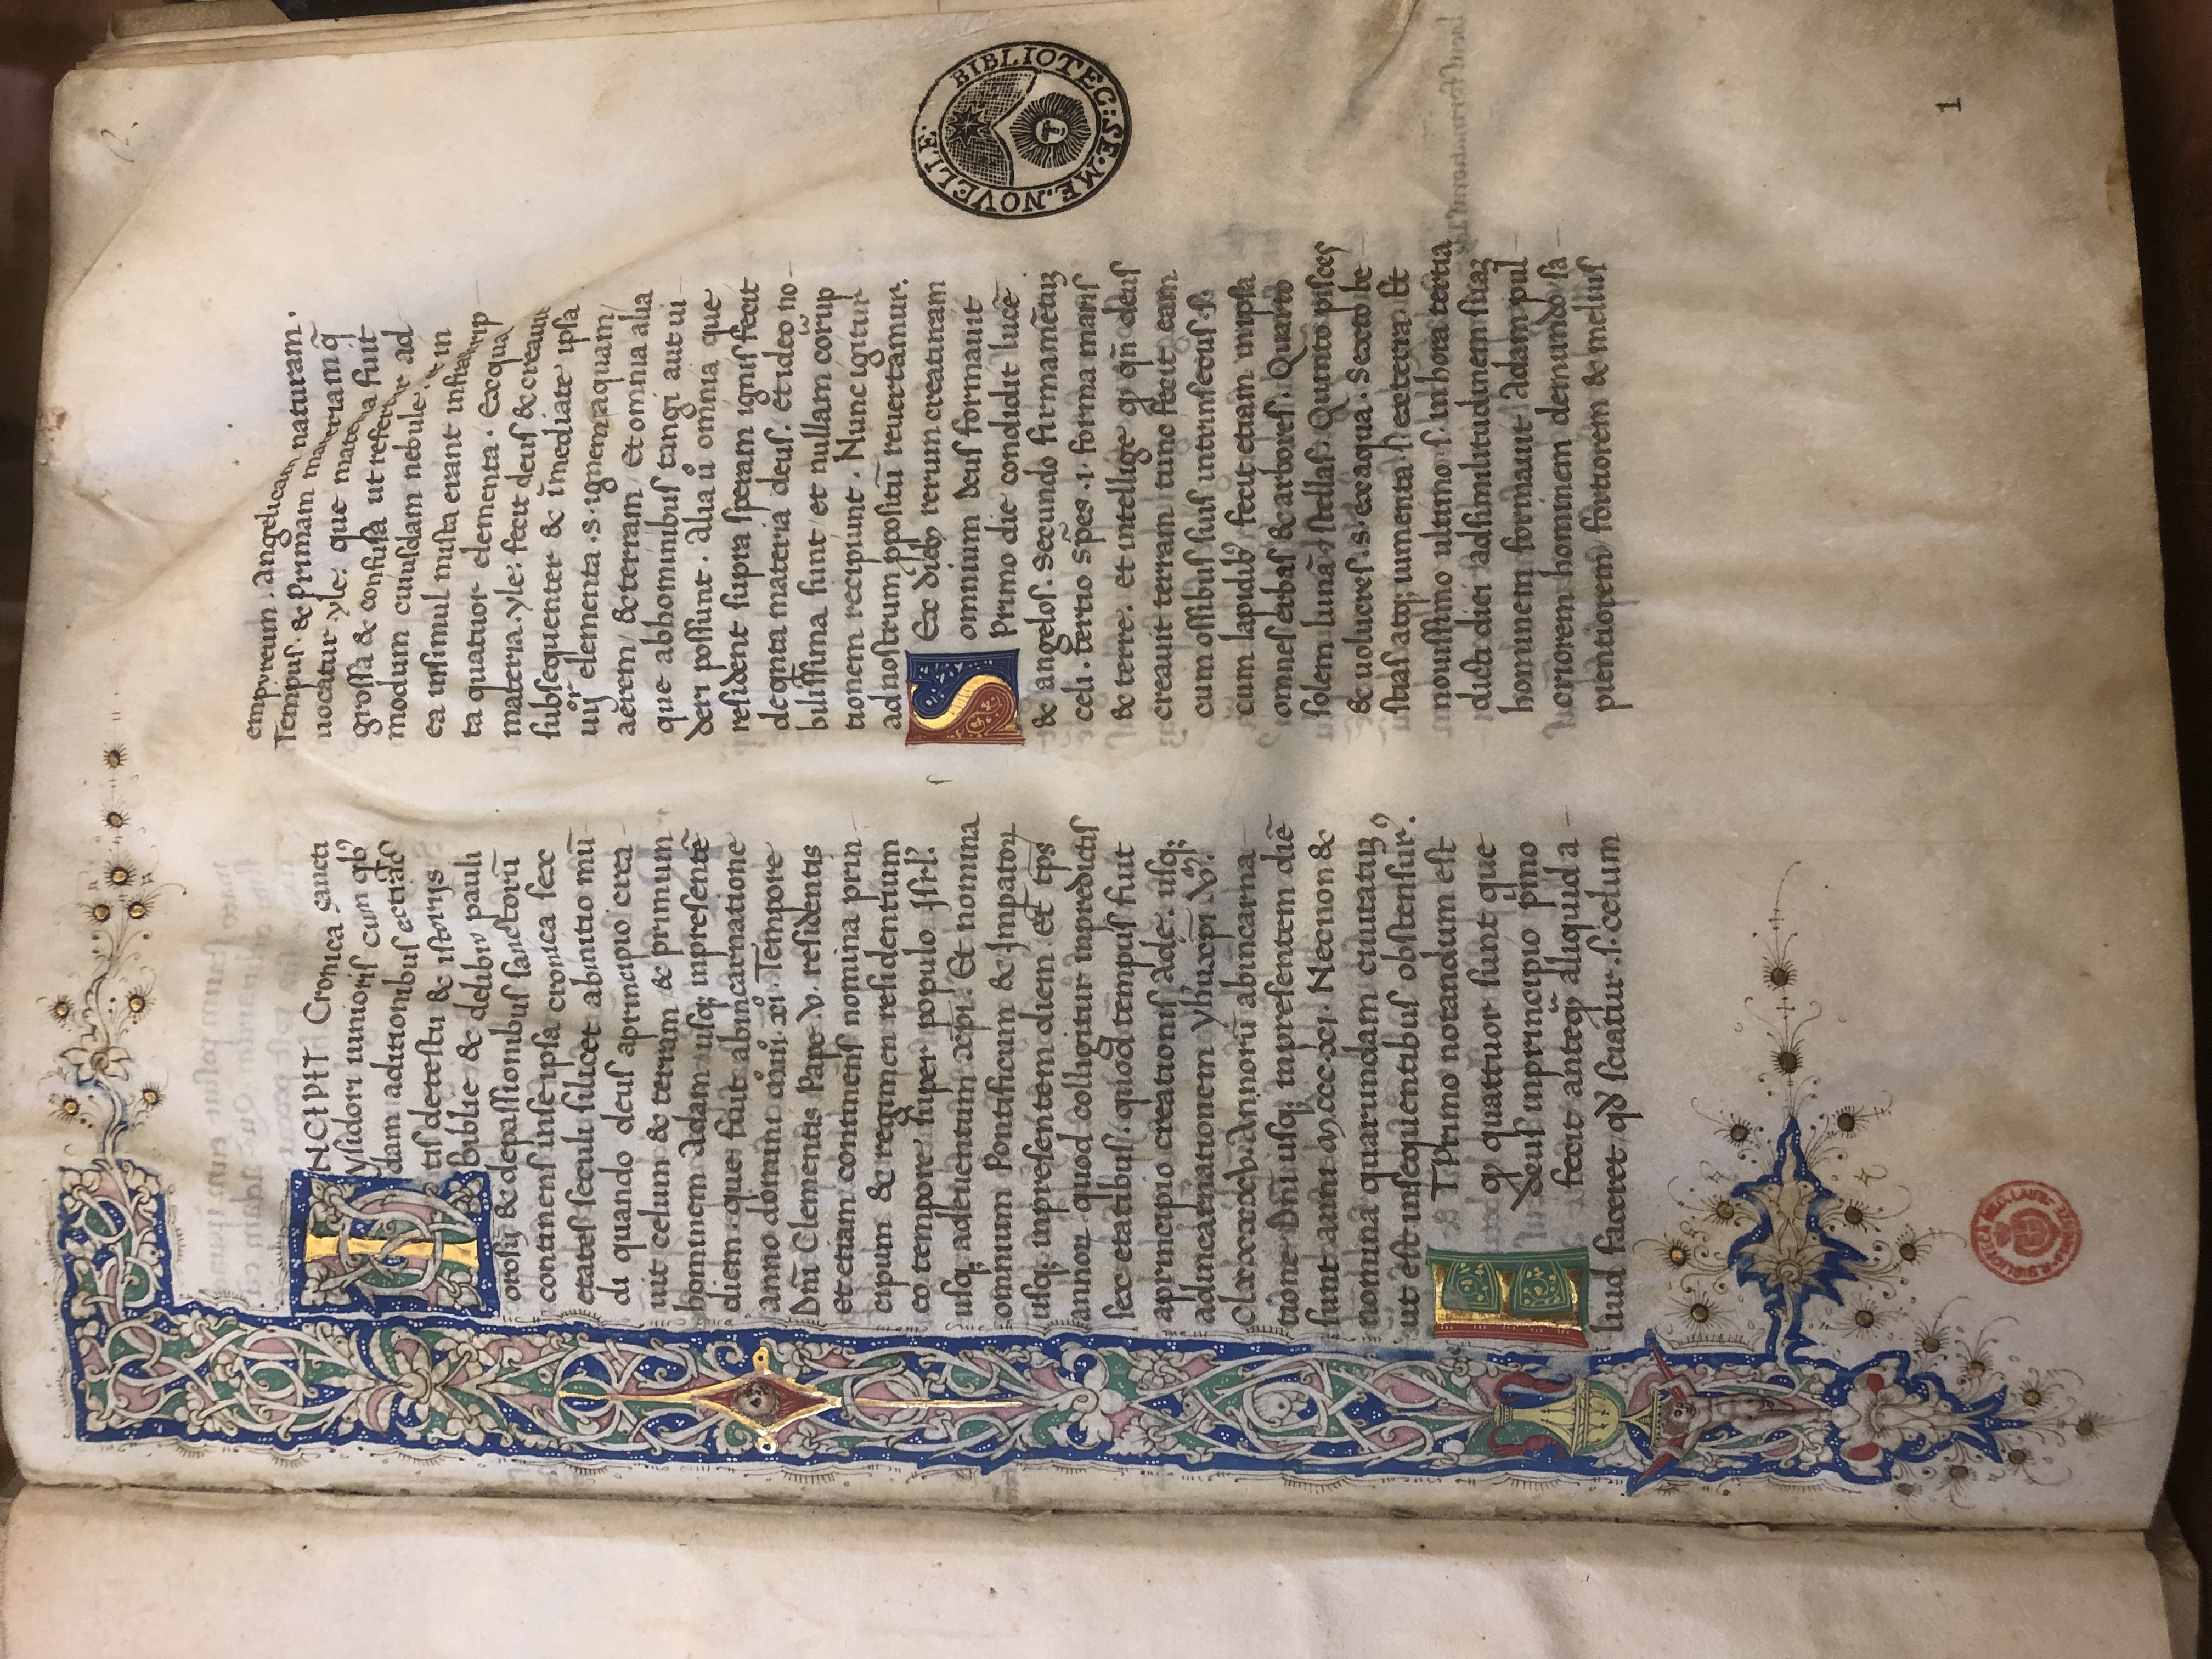 INCIPIT Cronica sancti
Ysidori iunioris cum qb3
dam aditionibus
tis detestu & istorijs
biblie & delibro pauli
orosij & depassionibus sanctorū
continens inse ipsa cronica sex
etates seculi silicet abinitio mū
di quando deus aprincipio crea
uit celum & terram & primum
hominem adam usq; inpresentē
diem. que fuit abincarnatione
anno domini xi. Tempore
Dnī Clementis Pape .v. residentis
et etiam continens nomina prin
cipum & regimen residentium
eo tempore super populo isrl'.
usq; adeuentum xp̄i. Et nomina
omnium Pontificum & Imperator
usq; inpresentem diem et tp̄s
annor quod colligitur inpredictis
sex etatibus. quod tempus fuit
aprincipio creationis ade. usq;
adincarnationem yhu xp̄i
abincarna
tione Dnī usq; inpresentem diē
sunt anni Necnon &
nomina quarundam ciuitatu3
ut est insequentibus ostensur'.
ET Primo notandum est
q quattuor sunt que
deus inprincipio pmo
fecit anteq aliquid a
liud faceret qd sciatur .s. celum
empyreum. Angelicam naturam.
Tempus. & Primam materiam q̄
uocatur yle. que materia fuit
grossa & confusa ut refertur ad
modum cuiusdam nebule. & in
ea insimul mista erant
ta quatuor elementa. Ex qua
materia .yle. fecit deus & creauit
subsequenter & īmediate ipsa
iiij elementa .s. ignem aquam
aerem & terram. Et omnia alia
que abhominibus tangi aut ui
deri possunt. alia ū omnia que
resident supra speram ignis fecit
dequnta materia deus. et ideo no
bilissima sunt et nullam corup
tionem recipiunt. Nunc igitur
adnostrum ppositū reuertamur.
Sex dieb3 rerum creaturam
omnium deus formauit
Primo die condidit lucē
& angelos. Secundo firmamētu3
celi. tertio spēs .i. forma maris
& terre. et intellige q qn̄ deus
creauit terram tunc fecit eam
cum ossibus suis intrinsecus .s.
cum lapidib3 fecit etiam inipsa
omnes erbas & arbores. Quarto
solem lunā & stellas. Quinto pisces
& uolucres .s. exaqua. Sexto be
stias atq; iumenta .s. exterra Et
nouissimo ultimo .s. inhora tertia
dicti diei adsimilitudinem sua3
hominem formauit Adam pul
criorem hominem demundo sa
pientiorem fortiorem & melius
BIBLIOTEC: SE. ME. NOVELLE.
1